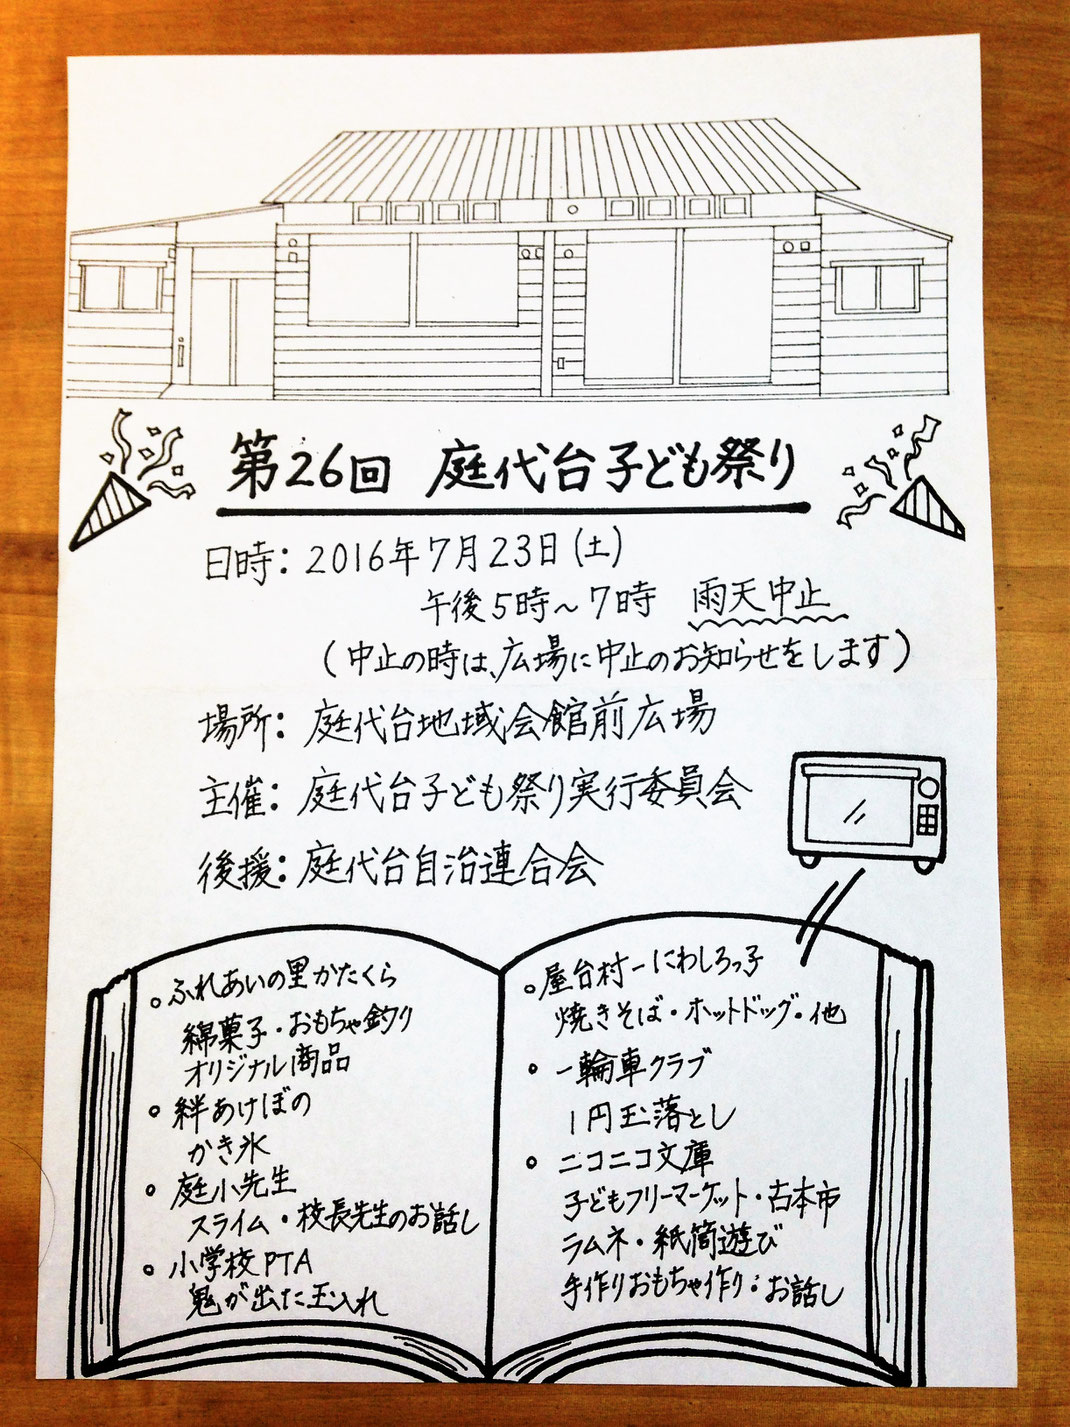 第26回 庭代台子ども祭り
日時：2016年7月23日(土)
午後5時～7時 雨天中止
(中止の時は、広場に中止のお知らせをします)
場所：庭代台地域会館前広場
主催：庭代台子ども祭り実行委員会
後援：庭代台自治連合会
○ふれあいの里かたくら
綿菓子・おもちゃ釣り
オリジナル商品
○絆あけぼの
かき氷
○庭小先生
スライム・校長先生のお話し
○小学校PTA
鬼が出た玉入れ
○屋台村ーにわしろっ子
焼きそば・ホットドッグ・他
○一輪車クラブ
1円玉落とし
○ニコニコ文庫
子どもフリーマーケット・古本市
ラムネ・紙筒遊び
手作りおもちゃ作り：お話し